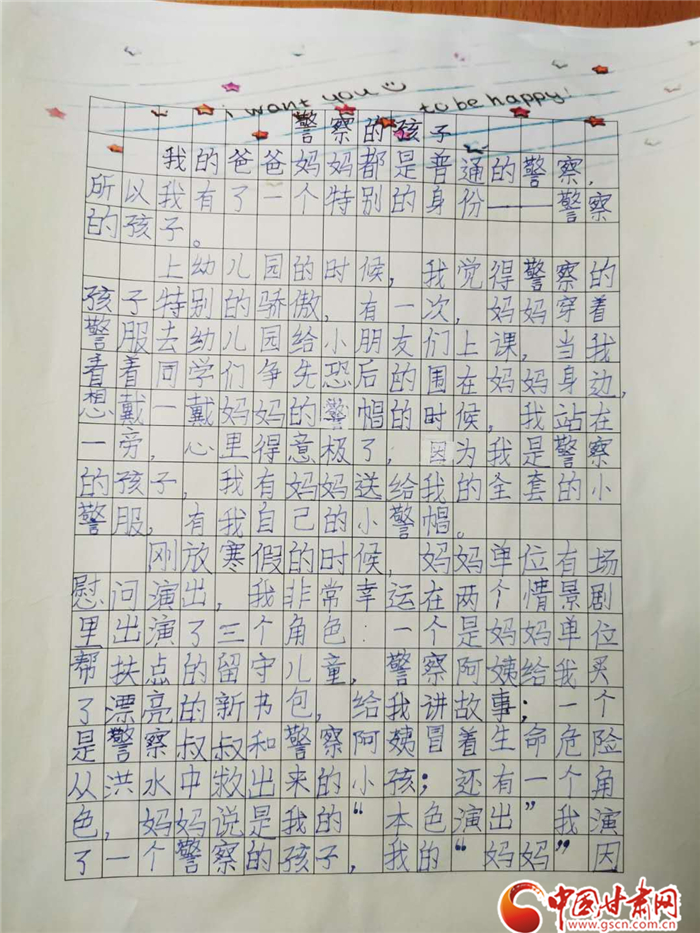 i want you
to be happy!
警察的孩子
我的爸爸妈妈都是普通的警察，
所以我有了一个特别的身份——警察
的孩子。
上幼儿园的时候，我觉得警察的
孩子特别的骄傲，有一次，妈妈穿着
警服去幼儿园给小朋友们上课，当我
看着同学们争先恐后的围在妈妈身边，
想戴一戴妈妈的警帽的时候，我站在
一旁，心里得意极了，因为我是警察
的孩子，我有妈妈送给我的全套的小
警服，有我自己的小警帽。
刚放寒假的时候，妈妈单位有场
慰问演出，我非常幸运在两个情景剧
里出演了三个角色：一个是妈妈单位
帮扶点的留守儿童，警察阿姨给我买
了漂亮的新书包，给我讲故事；一个
是警察叔叔和警察阿姨冒着生命危险
从洪水中救出来的小孩；还有一个角
色，妈妈说是我的“本色演出”我演
了一个警察的孩子，我的“妈妈”因
中国甘肃网
www.gscn.com.cn